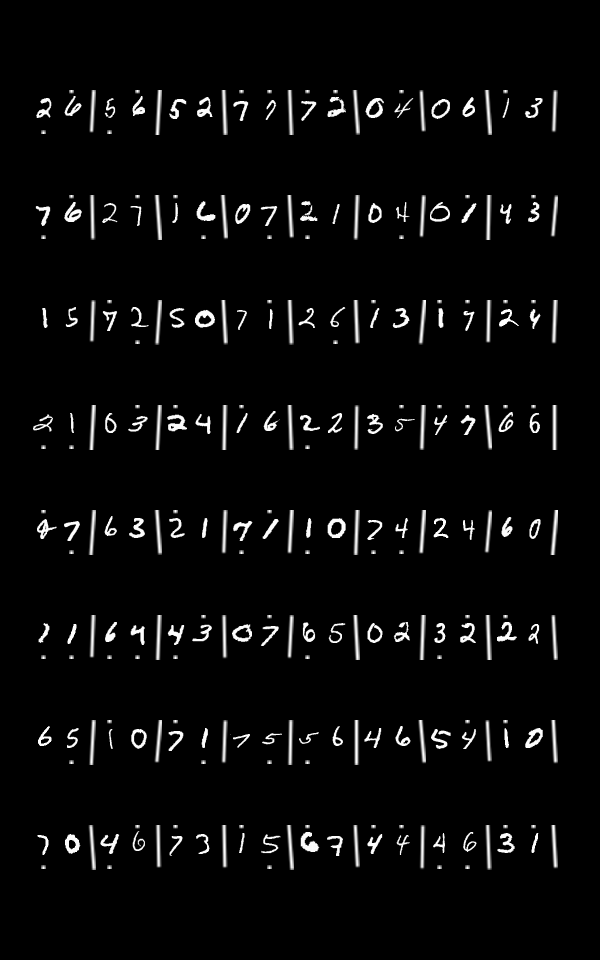 2 6 | 5 6 | 5 2 | 7 7 | 7 2 | 0 4 | 0 6 | 1 3 |
7 6 | 2 7 | 1 6 | 0 7 | 2 1 | 0 4 | 0 1 | 4 3 |
1 5 | 7 2 | 5 0 | 7 1 | 2 6 | 1 3 | 1 7 | 2 4 |
2 1 | 0 3 | 2 4 | 1 6 | 2 2 | 3 5 | 4 7 | 6 6 |
4 7 | 6 3 | 2 1 | 7 1 | 1 0 | 7 4 | 2 4 | 6 0 |
1 1 | 6 4 | 4 3 | 0 7 | 6 5 | 0 2 | 3 2 | 2 2 |
6 5 | 1 0 | 7 1 | 7 5 | 5 6 | 4 6 | 5 4 | 1 0 |
7 0 | 4 6 | 7 3 | 1 5 | 6 7 | 4 4 | 4 6 | 3 1 |